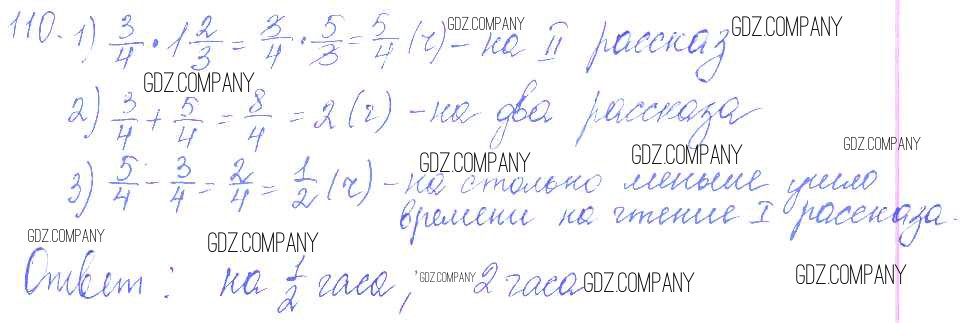 110. 1) 3/4 • 1 2/3 = 3/4 • 5/3 = 5/4 (ч) – на II рассказ
GDZ.COMPANY GDZ.COMPANY
GDZ.COMPANY
2) 3/4 + 5/4 = 8/4 = 2 (ч) – на два рассказа
GDZ.COMPANY GDZ.COMPANY GDZ.COMPANY
3) 5/4 – 3/4 = 2/4 = 1/2 (ч) – на столько меньше ушло
времени на чтение I рассказа.
GDZ.COMPANY GDZ.COMPANY
Ответ: на 1/2 часа, 2 часа
GDZ.COMPANY GDZ.COMPANY GDZ.COMPANY